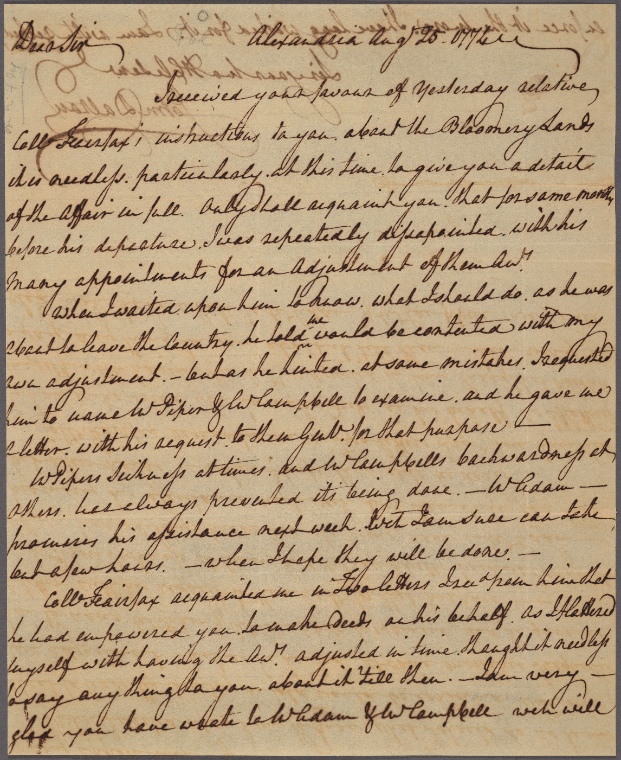 Dear Sir Alexandria Augt 25. 1774
I received your favour of Yesterday relative
Collo Fairfax's instructions to you about the Bloomery Lands
it is needless, particularly at this time to give you a detail
of the Affair in full. Only shall acquaint you that for some months
before his departure I was repeatedly dissapointed with his
Many appointments for an Adjustment of them Accts
when I waited upon him to know what I should do, as he was
about to leave the Country, he told me would be contented with my
own adjustment. - but as he hinted at some mistakes, I requested
him to name Mr Piper & Mr Campbell to examine, and he gave me
a letter, with his request to them Gentn for that purpose -
Mr Pipers Sickness at times, and Mr Campbells backwardness at
others, has always prevented its being done. - Mr Adam -
promises his assistance next week. but I am sure can take
but a few hours. - when I hope they will be done. -
Collo Fairfax acquainted me in Two letters I recd from him that
he had empowered you to make deeds on his behalf, as I flattered
myself with having the Accts adjusted in time thought it needless
to say any thing to you about it 'till then. - I am very -
glad you have wrote to Mr Adam & Mr Campbell wch will